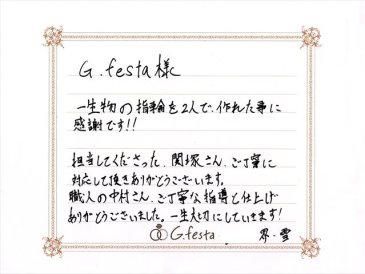 G.festa様
一生物の指輪を2人で、作れた事に
感謝です!!
担当してくださった、関塚さん、ご丁寧に
対応して頂きありがとうございます。
職人の中村さん、ご丁寧な指導と仕上げ
ありがとうございました。一生大切にしていきます!
G.festa